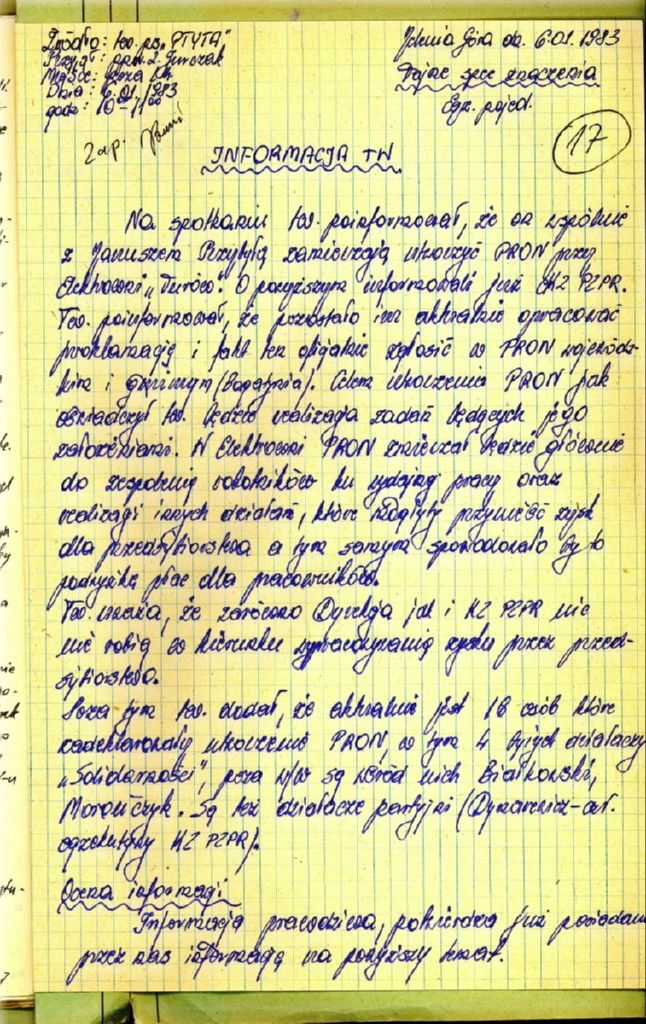 Źródło: tw. ps. "PTYTA"
Przyjął: ppor. Z. Jurczak
Miejsce:
Dnia: 6.01.1983
godz: 10⁰⁰-11⁰⁰
Jelenia Góra dn. 6.01.1983
Tajne spec znaczenia
Egz. pojed.
Zap.
17
INFORMACJA TW
Na spotkaniu tw. poinformował, że on wspólnie
z Januszem zamierzają utworzyć PRON przy
Elektrowni "Turów". O powyższym informowali już KZ PZPR.
Tw. poinformował, że pozostało im aktualnie opracować
proklamację i fakt ten oficjalnie zgłosić w PRON wojewódz-
kim i gminnym (Bogatynia). Celem utworzenia PRON jak
oświadczył tw. będzie realizacja zadań będących jego
założeniami. W Elektrowni PRON zmierzał będzie głównie
do zespolenia robotników ku wydajnej pracy oraz
realizacji innych działań, które mogłyby przynieść zysk
dla przedsiębiorstwa a tym samym spowodowało by to
podwyżkę płac dla pracowników.
Tw. uważa, że zarówno Dyrekcja jak i KZ PZPR nic
nie robią w kierunku wypracowywania zysku przez przed-
siębiorstwo.
Poza tym tw. dodał, że aktualnie jest 18 osób które
zadeklarowały utworzenie PRON, w tym 4 byłych działaczy
"Solidarności", poza w/w są wśród nich Białkowski,
Morończyk. Są też działacze partyjni (
egzekutywy KZ PZPR).
Ocena informacji
Informacja prawdziwa, potwierdza już posiadane
przez nas informacje na powyższy temat.